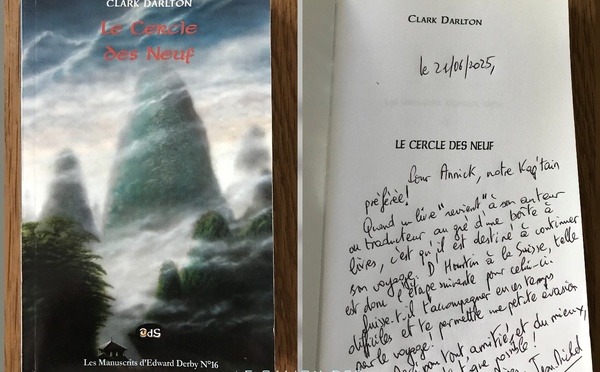 CLARK DARLTON
Le Cercle
des Neuf
Les Manuscrits d'Edward Derby N°16
CLARK DARLTON
le 21/06/2025,
LE CERCLE DES NEUF
Pour Annick, notre Kap'tain
préférée!
Quand un livre "revient" à son auteur
ou traducteur au gré d'une boîte à
livres, c'est qu'il est destiné à continuer
son voyage. D'Hourtin à la Suisse, telle
est donc l'étape suivante pour celui-ci.
Puisse-t-il t'accompagner en ces temps
difficiles et te permettre une petite évasion
sur le voyage.
tout, amitié et du mieux,
possible!